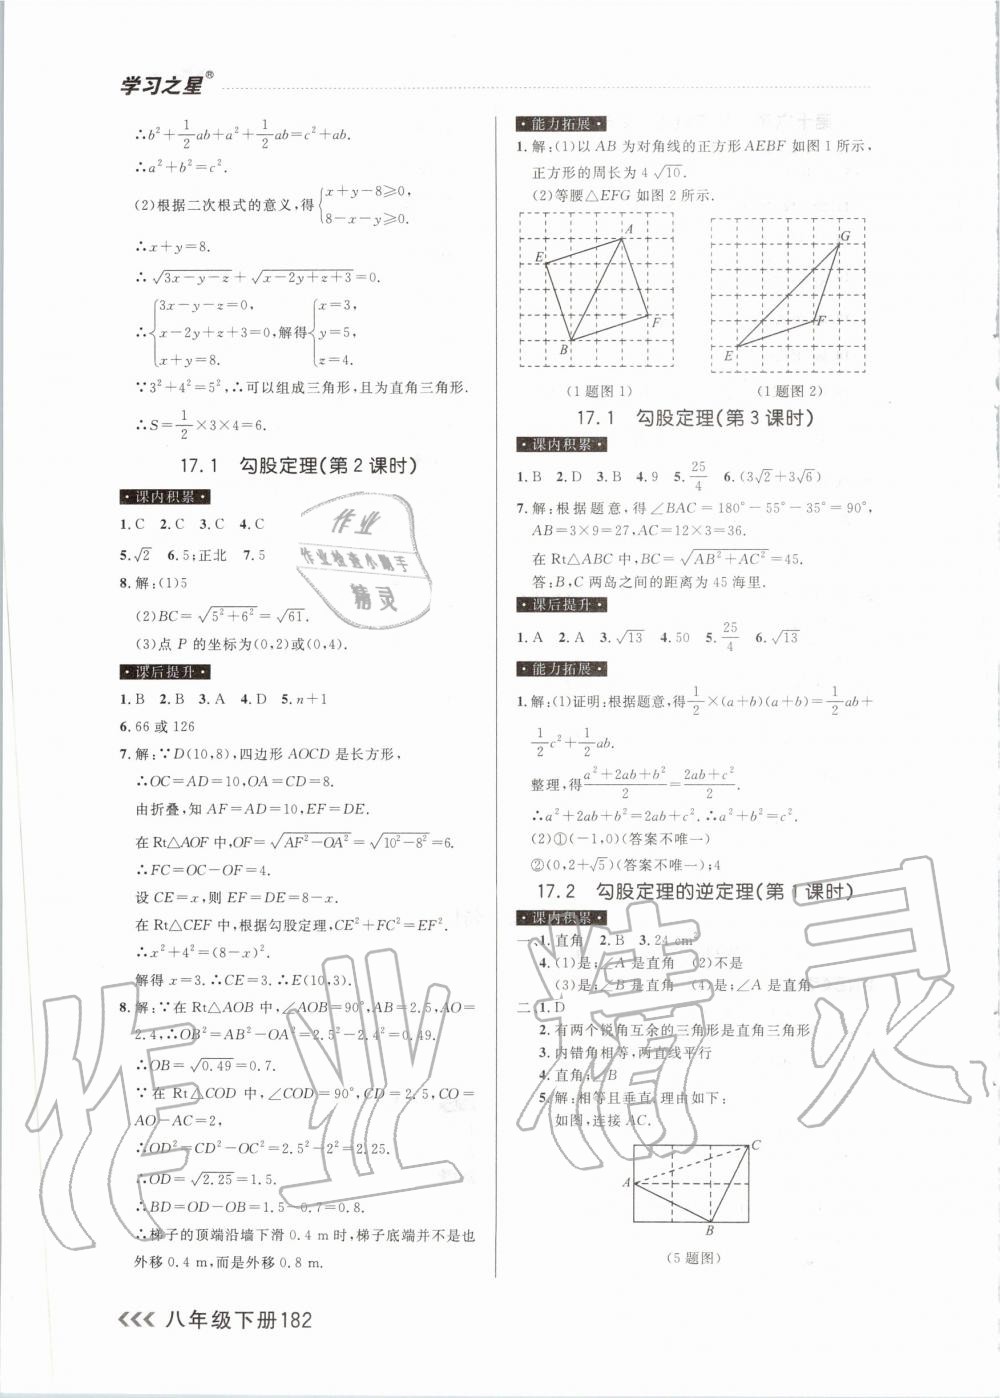 学习之星®
∴b²+1/2ab+a²+1/2ab=c²+ab.
∴a²+b²=c².
(2)根据二次根式的意义,得{x+y-8⩾0,
8-x-y⩾0.
∴x+y=8.
∴√(3x-y-z)+√(x-2y+z+3)=0.
∴{3x-y-z=0, x-2y+z+3=0,解得 x+y=8. {x=3, y=5, z=4.
∵3²+4²=5²,∴可以组成三角形,且为直角三角形.
∴S=1/2×3×4=6.
17.1 勾股定理(第2课时)
·课内积累·
1.C 2.C 3.C 4.C
5.√2 6.5;正北 7.5
8.解:(1)5
(2)BC=√(5²+6²)=√61.
(3)点P的坐标为(0,2)或(0,4).
·课后提升·
1.B 2.B 3.A 4.D 5.n+1
6.66或126
7.解:∵D(10,8),四边形AOCD是长方形,
∴OC=AD=10,OA=CD=8.
由折叠,知AF=AD=10,EF=DE.
在Rt△AOF中,OF=√(AF²-OA²)=√(10²-8²)=6.
∴FC=OC-OF=4.
设CE=x,则EF=DE=8-x.
在Rt△CEF中,根据勾股定理,CE²+FC²=EF².
∴x²+4²=(8-x)².
解得x=3.∴CE=3.∴E(10,3).
8.解:∵在Rt△AOB中,∠AOB=90°,AB=2.5,AO=
2.4,∴OB²=AB²-OA²=2.5²-2.4²=0.49.
∴OB=√0.49=0.7.
∵在Rt△COD中,∠COD=90°,CD=2.5,CO=
AO-AC=2,
∴OD²=CD²-OC²=2.5²-2²=2.25.
∴OD=√2.25=1.5.
∴BD=OD-OB=1.5-0.7=0.8.
∴梯子的顶端沿墙下滑0.4 m时,梯子底端并不是也
外移0.4 m,而是外移0.8 m.
八年级下册182
·能力拓展·
1.解:(1)以AB为对角线的正方形AEBF如图1所示,
正方形的周长为4√10.
(2)等腰△EFG如图2所示.
A
E
F
B
(1题图1)
G
F
E
(1题图2)
17.1 勾股定理(第3课时)
·课内积累·
1.B 2.D 3.B 4.9 5.25/4 6.(3√2+3√6)
7.解:根据题意,得∠BAC=180°-55°-35°=90°,
AB=3×9=27,AC=12×3=36.
在Rt△ABC中,BC=√(AB²+AC²)=45.
答:B,C两岛之间的距离为45海里.
·课后提升·
1.A 2.A 3.√13 4.50 5.25/4 6.√13
·能力拓展·
1.解:(1)证明:根据题意,得1/2×(a+b)(a+b)=1/2ab+
1/2c²+1/2ab.
整理,得(a²+2ab+b²)/2=(2ab+c²)/2.
∴a²+2ab+b²=2ab+c².∴a²+b²=c².
(2)①(-1,0)(答案不唯一)
②(0,2+√5)(答案不唯一);4
17.2 勾股定理的逆定理(第1课时)
·课内积累·
一、1.直角 2.B 3.24 cm²
4.(1)是;∠A是直角 (2)不是
(3)是;∠B是直角 (4)是;∠A是直角
二、1.D
2.有两个锐角互余的三角形是直角三角形
3.内错角相等,两直线平行
4.直角;∠B
5.解:相等且垂直.理由如下:
如图,连接AC.
A
B
C
(5题图)
作业
作业检查小助手
精灵
作业精灵